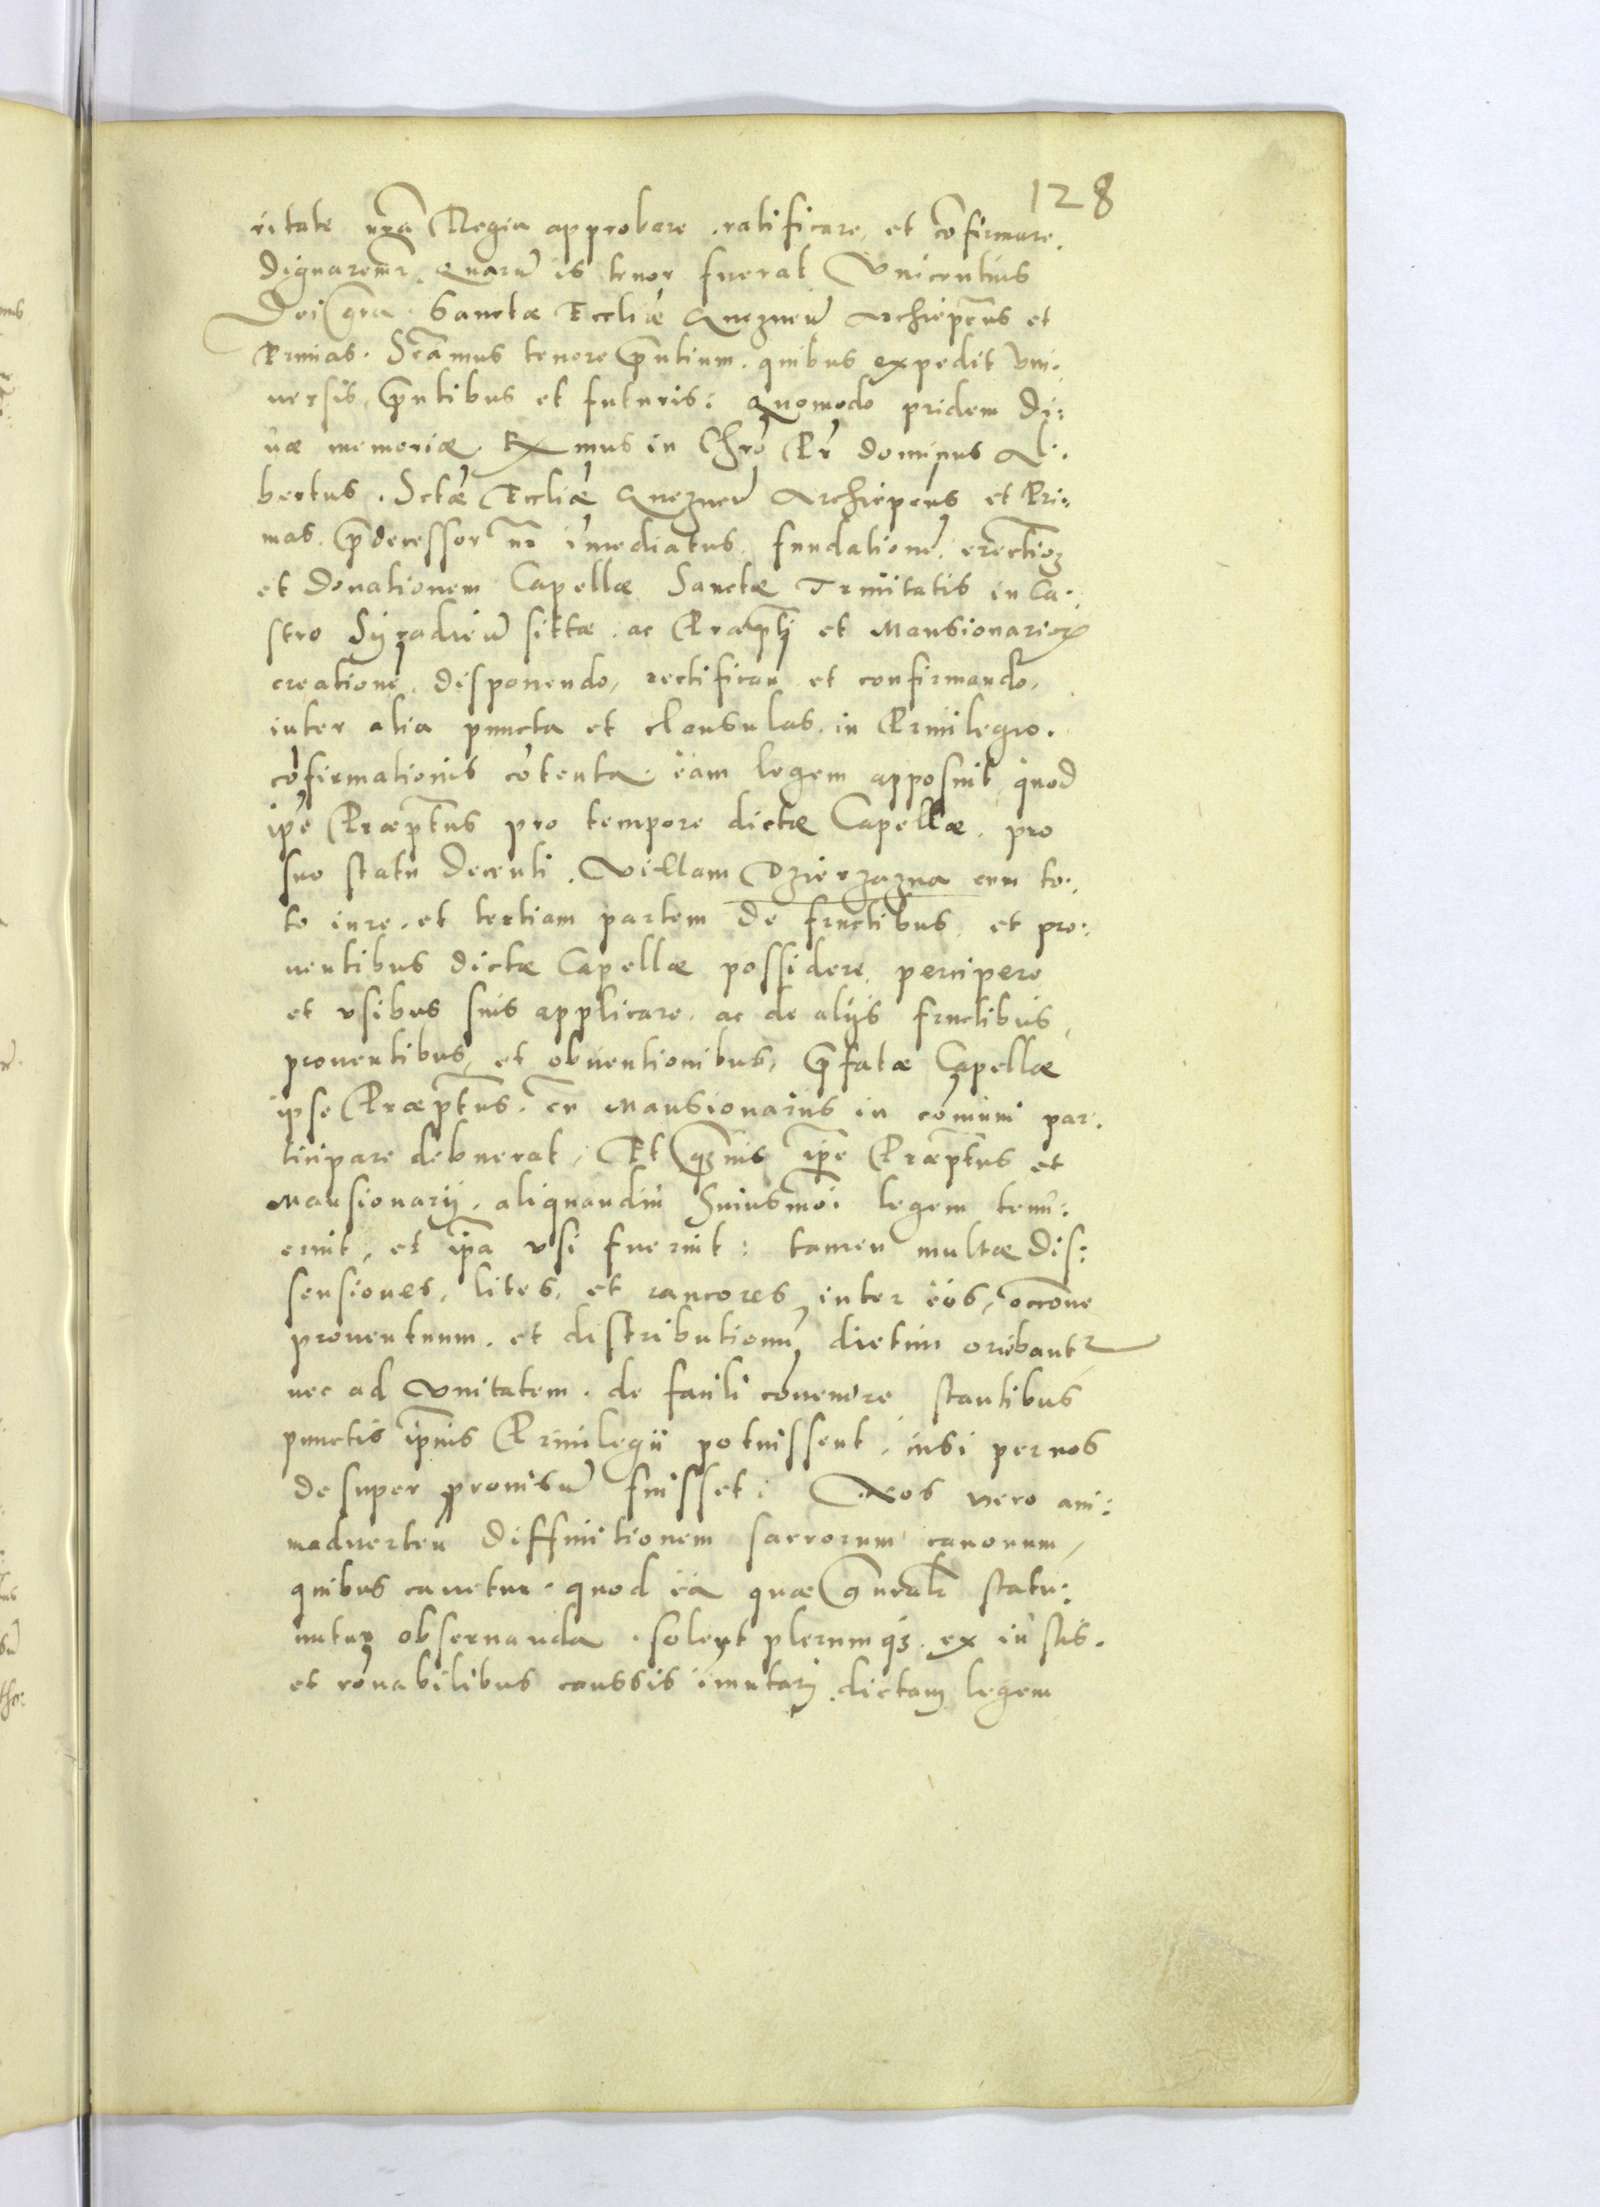 128
ritate nr̃a Regia approbare, ratificare, et cõfirmare
dignaremr̃. Quarũ is tenor fuerat. Vincentius
Dei gr̃a Sanctæ Eccliæ Gneznen̄ Archiep̃cus et
Primas. Sĉamus tenore p̃ntium. quibus expedit vni:
uersis, p̃ntibus et futuris: Quomodo pridem di:
uæ memoriæ. Rx̃mus in Chrõ Pr̃ dominus Al:
bertus. Sctæ Eccliæ Gneznen̄ Archiep̃cus et Pri:
mas. p̃decessor nr̃ im̃ediatus. fundationẽ. erectioꝫ
et donationem Capellæ Sanctæ Trinitatis in Ca:
stro Syradien̄ sittæ. ac Præp̃ti et Mansionarioꝝ
creationẽ. disponendo, rectifican̄ et confirmando,
inter alia puncta et clausulas. in Priuilegio.
cõfirmationis cõtenta. eam legem apposuit quod
ip̃e Præp̃tus pro tempore dictæ Capellæ. pro
suo statu decenti. Villam Dzierzazna cum to:
to iure. et tertiam partem de fructibus, et pro:
uentibus dictæ Capellæ possidere percipere
et vsibus suis applicare. ac de alijs fructibus,
prouentibus, et obuentionibus, p̃fatæ Capellæ
ipse Præp̃tus. cũ Mansionarijs in cõmuni par:
ticipare debuerat, Et q̃ꝫuis ip̃e Præp̃tus et
Mansionarij. aliquandiu huiusmõi legem tenu:
erint, et ip̃a vsi fuerint: tamen multæ dis:
sensiones, lites, et rancores inter eos, occõne
prouentuum. et distributionũ, dietim oriebantr̃
nec ad vnitatem. de facili cõuenire stantibus
punctis ip̃ius Priuilegij potuissent, nisi per nos
desuper prouisũ fuisset: Nos vero ani:
maduerten̄ diffinitionem sacrorum canonum,
quibus cauetur. quod ea quæ gñralr̃ statu:
untur obseruanda. solent plerumqꝫ. ex iustis.
et rõnabilibus caussis im̃utari. dictam legem